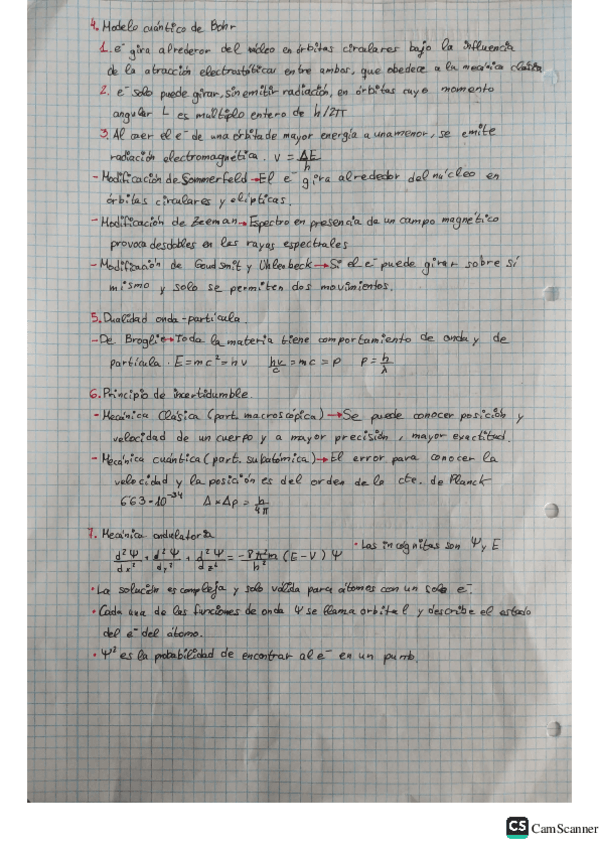 4. Modelo cuántico de Bohr
1. e⁻ gira alrereror del núcleo en órbitas circulares bajo la influencia
de la atracción electrostática entre ambos, que obedece a la mecánica clásica
2. e⁻ solo puede girar, sin emitir radiación, en órbitas cuyo momento
angular L es múltiplo entero de h/2π
3. Al caer el e⁻ de una órbita de mayor energía a una menor, se emite
radiación electromagnética. ν = ΔE/h
- Modificación de Sommerfeld → El e⁻ gira alrededor del núcleo en
órbitas circulares y elípticas.
- Modificación de Zeeman → Espectro en presencia de un campo magnético
provoca desdobles en las rayas espectrales
- Modificación de Goudsmit y Uhlenbeck → Si el e⁻ puede girar sobre sí
mismo y solo se permiten dos movimientos.
5. Dualidad onda-partícula.
- De Broglie → Toda la materia tiene comportamiento de onda y de
partícula. E = mc² = hν hν/c = mc = p p = h/λ
6. Principio de incertidumble.
- Mecánica Clásica (part. macroscópica) → Se puede conocer posición y
velocidad de un cuerpo y a mayor precisión, mayor exactitud.
- Mecánica cuántica (part. subatómica) → El error para conocer la
velocidad y la posición es del orden de la cte. de Planck
6'63·10⁻³⁴ Δx Δp = h/4π
7. Mecánica ondulatoria
d²Ψ/dx² + d²Ψ/dy² + d²Ψ/dz² = -8π²m/h² (E-V) Ψ · Las incógnitas son Ψ y E
· La solución es compleja y solo válida para átomos con un solo e⁻.
· Cada una de las funciones de onda Ψ se llama orbital y describe el estado
del e⁻ del átomo.
· Ψ² es la probabilidad de encontrar al e⁻ en un punto.
CS CamScanner